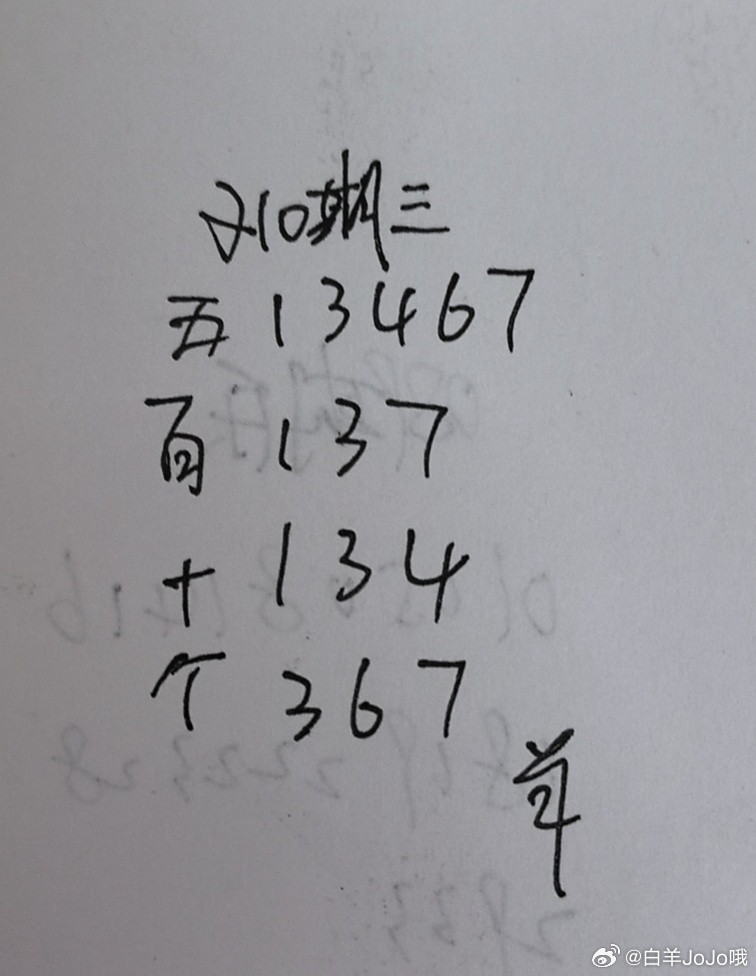 210期三
五 1 3 4 6 7
百 1 3 7
十 1 3 4
个 3 6 7
@白羊JoJo哦